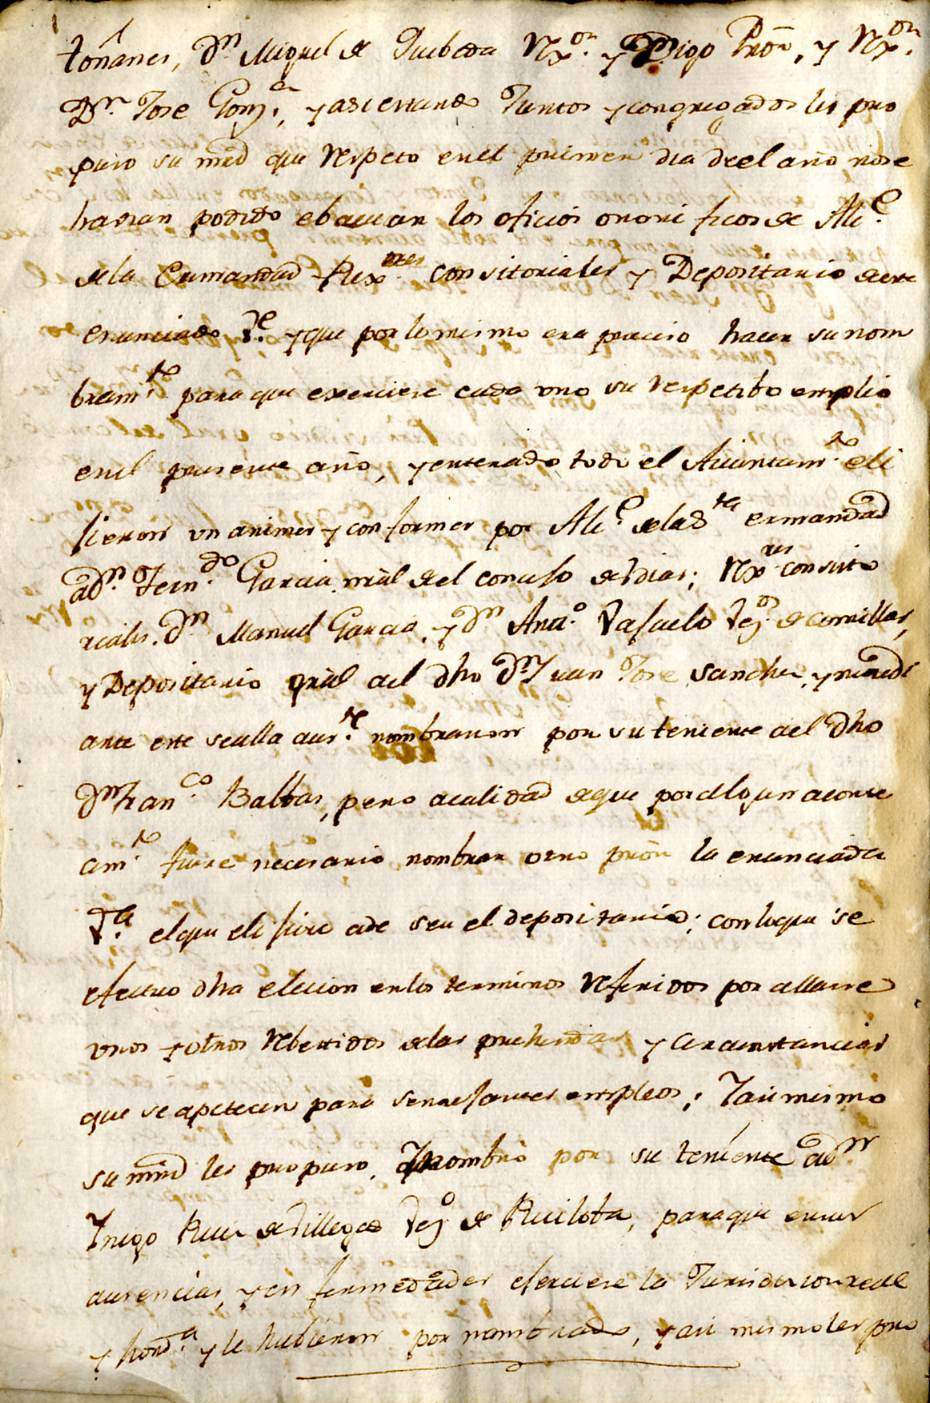 toñanes, Dn Miguel de Quebeda Rxor. y Digo Pror, y Rxor.
Dn. Jose Gonza, y asi estando Juntos y congregados les pro
puso su mrd que respeto en el primer dia de el año no se
havian podido ebacuar los oficios onorificos de Alce
de la Ermandad Rexores consitoriales y Depositario de este
enunciado Ve. y que por lo mismo era preciso hacer su nom
bramto para que exerciese cada vno su respetibo empleo
en el presente año, y enterado todo el Aiuntamto eli
jieron vnanimes y conformes por Alce de la Sta ermandad
a Dn. Ferndo Garcia nral del concejo de Vdias; Rxres consito
riales. Dn Manuel Garcia, y Dn Anto. Vajuelo Vejo de Comillas,
y Depositario gral a el dho Dn Juan Jose Sanchez, y medi
ante este se alla auste. nombraron por su teniente a el dho
Dn Franco. Balbas, pero a calidad de que por algun aconte
cimto fuese necesario nombrar otro pror la enunciada
Va. el que elijiere a de ser el depositario; con lo que se
efectuo dha elecion en los terminos referidos por allarse
vnos y otros rebestidos de las prehendas y circunstancias
que se apetecen para semejantes empleos; Y asi mismo
su mrd les propuso, nombrio por su teniente a Dn
Ynigo Ruiz de Villegas Vejo de Ruiloba, para que en sus
ausencias, y enfermedades ejerciese la Jurisdicion real
y horda y le hubieron por nombrado, y asi mismo les pro